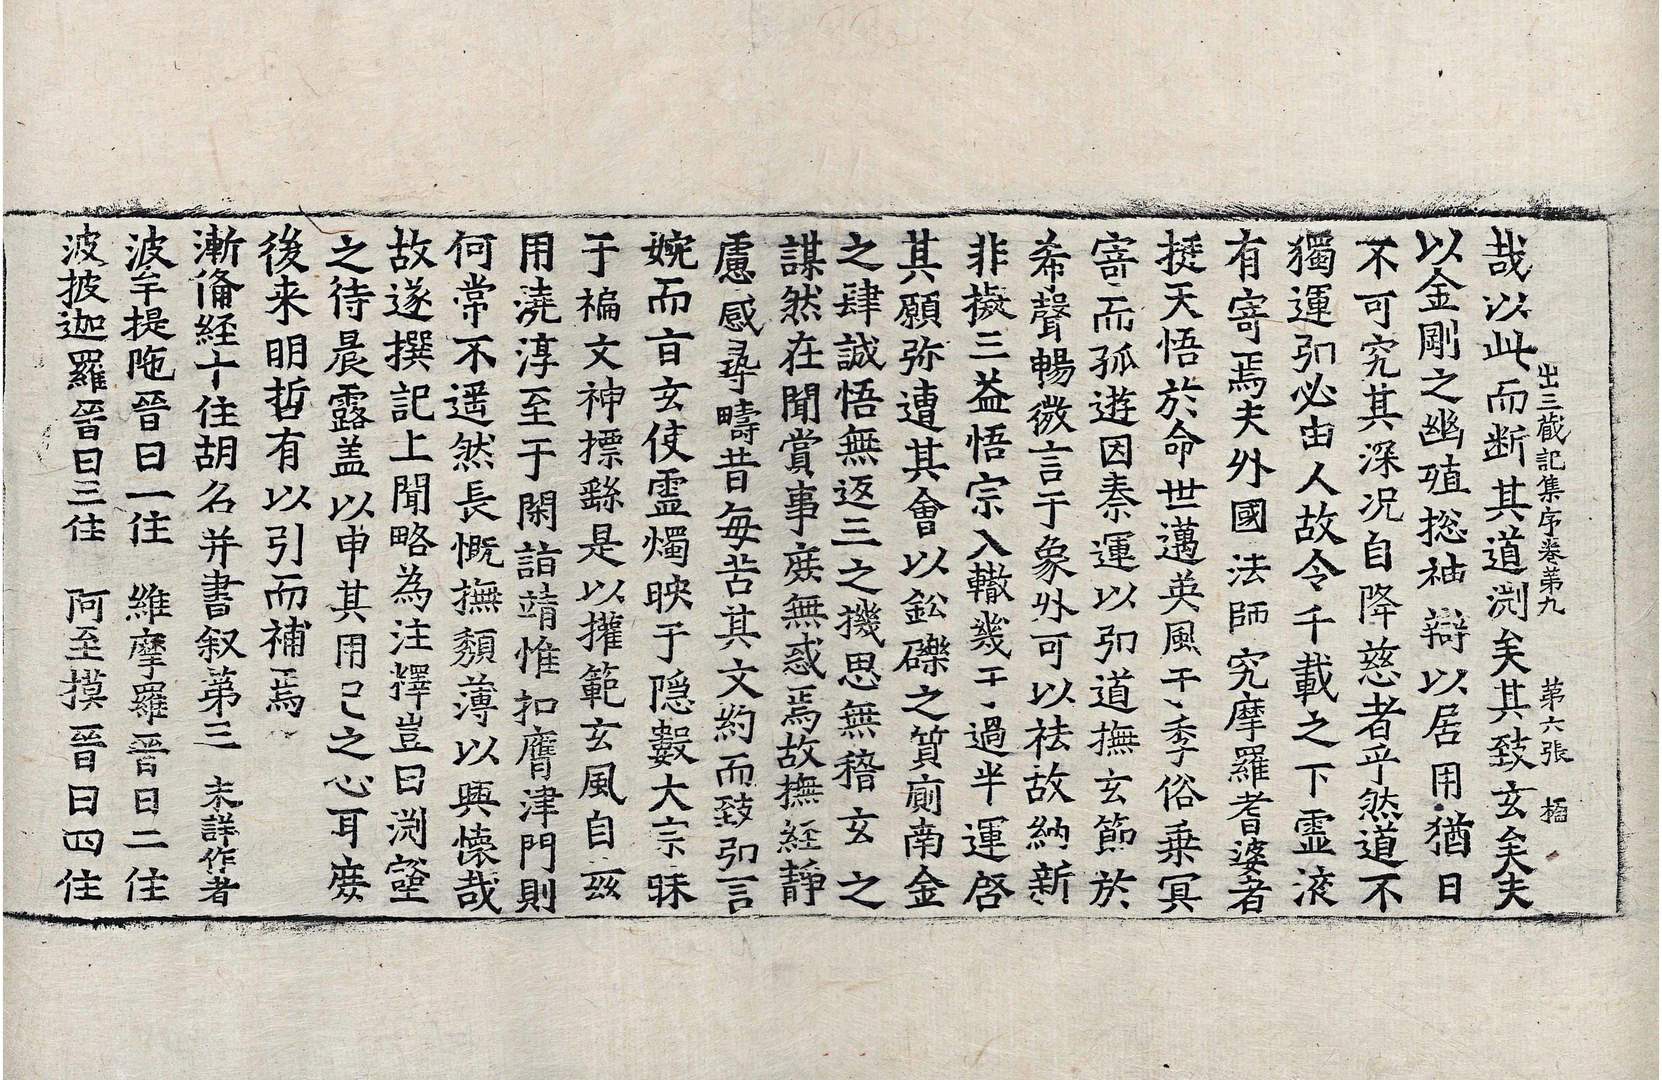 出三藏記集序卷第九　第六張　楅
哉以此而断其道渕矣其致玄矣夫
以金剛之幽殖捴袖辯以居用猶曰
不可究其深况自降慈者乎然道不
獨運弘必由人故令千載之下霊液
有寄焉夫外國法師究摩羅耆婆者
挺天悟於命世邁英風于季俗乗冥
寄而孤遊因秦運以弘道撫玄節於
希聲暢微言于象外可以祛故納新
非擬三益悟宗入轍幾于過半運啓
其願弥遭其會以鈆礫之質廁南金
之肆誠悟無返三之機思無稽玄之
謀然在聞賞事庶無惑焉故撫經靜
慮感尋疇昔毎苦其文約而致弘言
婉而旨玄使霊燭映于隐數大宗昧
于褊文神摽繇是以攉範玄風自兹
用澆淳至于閑詣靖惟扣膺津門則
何常不遥然長慨撫頽薄以興懐哉
故遂撰記上聞略為注釋豈曰渕壑
之待晨露盖以申其用已之心耳庶
後来明哲有以引而補焉
漸備經十住胡名并書叙第三　未詳作者
波牟提陁晉曰一住　維摩羅晉曰二住
波披迦羅晉曰三住　阿至摸晉曰四住